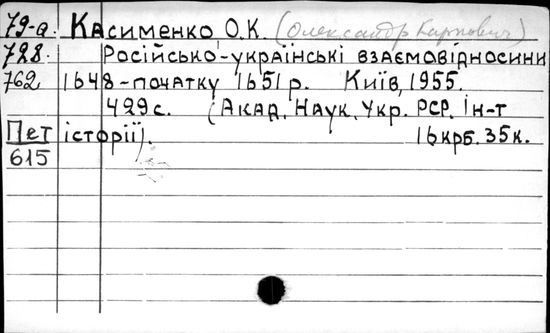 79-а. Касименко О.К. (Олександр Карпович)
728. Російсько-українські взаємовідносини
762 1648-початку 1651 р. Київ, 1955.
429 с. (Акад. Наук. Укр. РСР. Ін-т
Пет історії). 16 крб. 35 к.
615